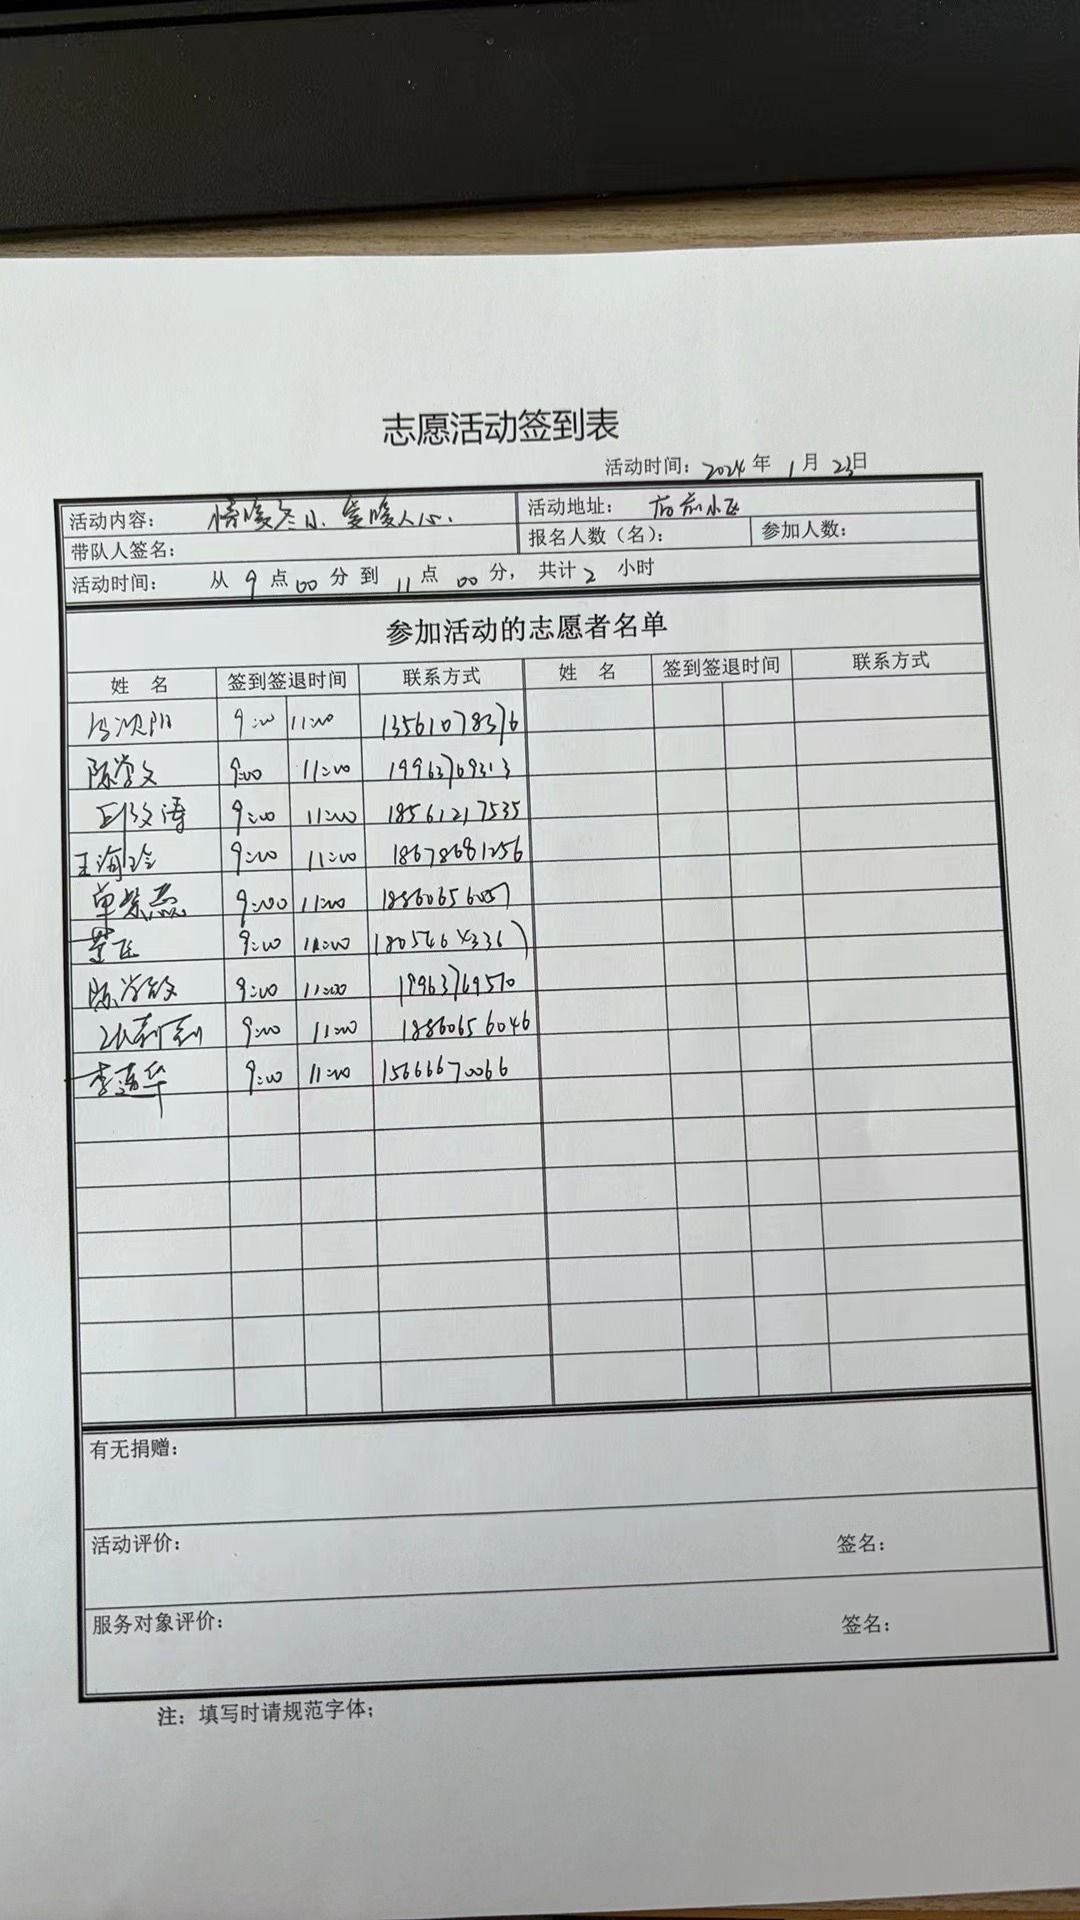 志愿活动签到表
活动时间：2024年 1月 23日
活动内容： 情暖冬日、爱暖人心. 活动地址： 前小区
带队人签名： 报名人数（名）： 参加人数：
活动时间： 从 9 点 00 分 到 11 点 00 分， 共计 2 小时
参加活动的志愿者名单
姓 名 签到签退时间 联系方式 姓 名 签到签退时间 联系方式
9:00 11:00 13561078376
陈学文 9:00 11:00 19963769313
文涛 9:00 11:00 18561217535
王海玲 9:00 11:00 18678681256
单紫燕 9:00 11:00 18860656057
9:00 11:00
陈学敏 9:00 11:00 19963769570
张莉莉 9:00 11:00 18860656046
李莲华 9:00 11:00 15666670066
有无捐赠：
活动评价： 签名：
服务对象评价： 签名：
注：填写时请规范字体；